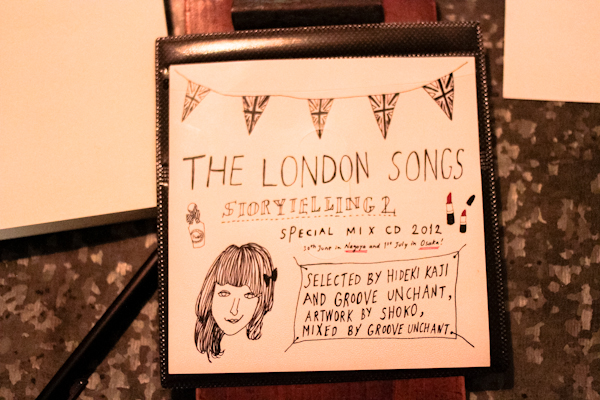 THE LONDON SONGS
STORYTELLING 2
SPECIAL MIX CD 2012
30th June in Nagoya and 1st July in Osaka!
SELECTED BY HIDEKI KAJI
AND GROOVE UNCHANT,
ARTWORK BY SHOKO,
MIXED BY GROOVE UNCHANT.